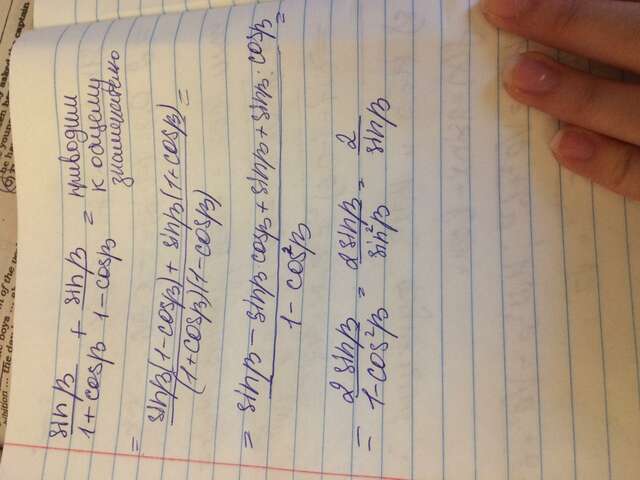 sinβ/(1+cosβ) + sinβ/(1-cosβ) = приводим к общему знаменателю
= (sinβ(1-cosβ) + sinβ(1+cosβ))/((1+cosβ)(1-cosβ)) =
= (sinβ - sinβ cosβ + sinβ + sinβ·cosβ)/(1-cos²β) =
= 2sinβ/(1-cos²β) = 2sinβ/sin²β = 2/sinβ